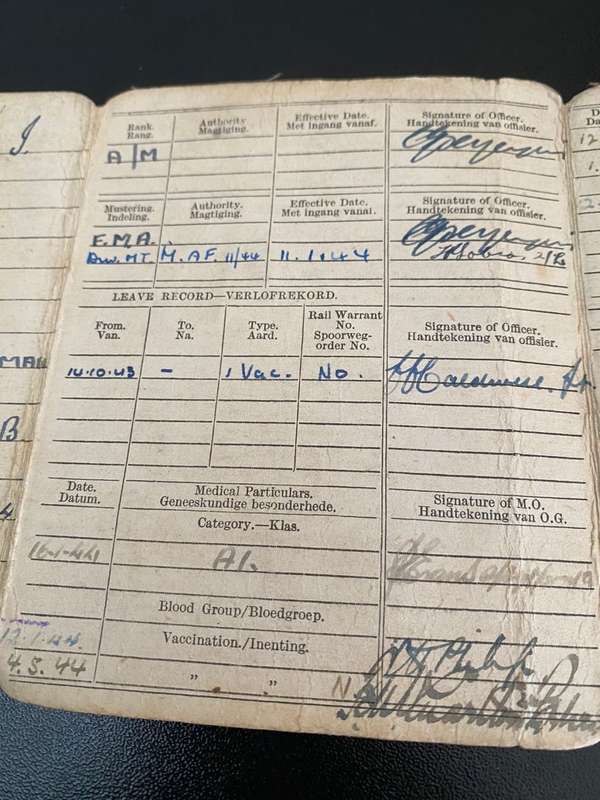 Rank. Authority Effective Date. Signature of Officer.
Rang. Magtiging. Met ingang vanaf. Handtekening van offisier.
A/M
Mustering. Authority. Effective Date. Signature of Officer.
Indeling. Magtiging. Met ingang vanaf. Handtekening van offisier.
E.M.A.
Drv. M.T. M.A.F. 11/44 11.1.44
LEAVE RECORD—VERLOFREKORD.
From. To. Type. Rail Warrant No. Signature of Officer.
Van. Na. Aard. Spoorweg-order No. Handtekening van offisier.
14.10.43 – 1 Vac. No.
Date. Medical Particulars. Signature of M.O.
Datum. Geneeskundige besonderhede. Handtekening van O.G.
Category.—Klas.
A1.
Blood Group/Bloedgroep.
12.1.44. Vaccination./Inenting.
4.5.44 " "